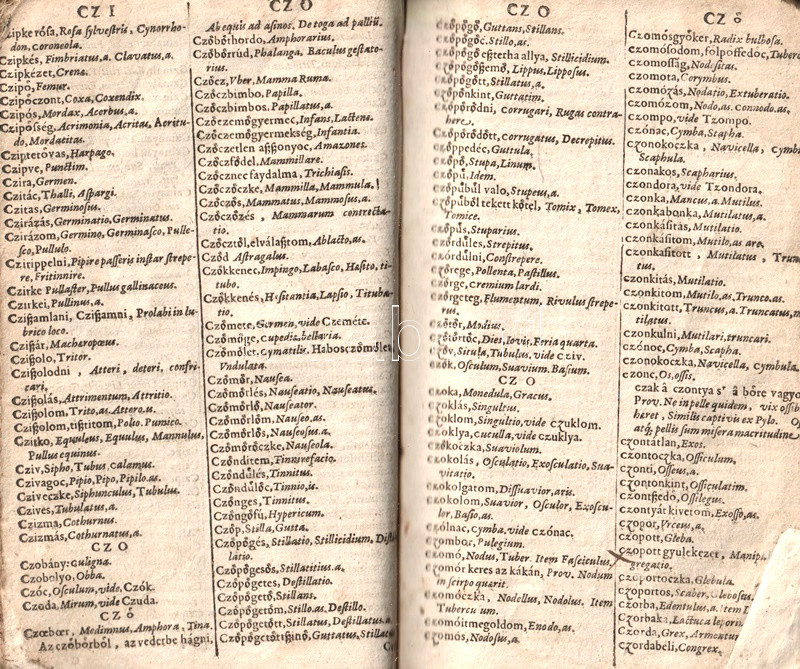 CZ I
Czipke rósa, Rosa sylvestris, Cynorrho-
don, coroneola.
Czipkés, Fimbriatus, a. Clavatus, a.
Czipkézet, Crena.
Czipó, Femur.
Czipóczont, Coxa, Coxendix.
Czipós, Mordax, Acerbus, a.
Czipósség, Acrimonia, Acritas, Acritu-
do, Mordacitas.
Cziptetóvas, Harpago.
Czipve, Punctim.
Czira, Germen.
Czitác, Thalli, Aspargi.
Czitas, Germinosus.
Czirázás, Germinatio, Germinatus.
Czirázom, Germino, Germinasco, Pulle-
sco, Pullulo.
Czirippelni, Pipire passeris instar strepe-
re, Fritinnire.
Czirke Pullaster, Pullus gallinaceus.
Czirkei, Pullinus, a.
Czissamlani, Czissamni, Prolabi in lu-
brico loco.
Czissár, Machæropœus.
Czissolo, Tritor.
Czissolodni, Atteri, deteri, confri-
cari,
Czissolás, Attrimentum, Attritio.
Czissolom, Trito, as, Attero, u.
Czissolom, tisttitom, Polio, Pumico.
Czitko, Equuleus, Equulus, Mannulus,
Pullus equinus.
Cziv, Sipho, Tubus, Calamus.
Czivagoc, Pipio, Pipo, Pipilo, as.
Cziveczke, Siphunculus, Tubulus.
Czives, Tubulatus, a.
Czizma, Cothurnus.
Czizmás, Cothurnatus, a.
CZ O
Czobány, Culigna.
Czobolyo, Obba.
Czóc, Osculum, vide Czók.
Czoda, Mirum, vide Czuda.
CZ ó
Czœbœr, Medimnus, Amphora, Tina.
Az czóbórból, az vederbe hágni,
CZ O
Ab equis ad asinos. De toga ad palliũ.
Czóbórhordo, Amphorarius.
Czóbórrúd, Phalanga. Baculus gestato-
rius.
Czócz, Vber, Mamma Ruma.
Czóczbimbo, Papilla.
Czóczbimbos, Papillatus, a.
Czóczemógyermec, Infans, Lactens.
Czóczemógyermekség, Infantia.
Czóczetlen asszonyoc, Amazones.
Czóczfódel, Mammillare.
Czócznec faydalma, Trichiasis.
Czóczóczke, Mammilla, Mammula.
Czóczós, Mammatus, Mammosus, a.
Czóczózés, Mammarum contrecta-
tio.
Czócztól, elválasstom, Ablacto, as.
Czód Astragalus.
Czókkenec, Impingo, Labasco, Hæsito, ti-
tubo.
Czókkenés, Hæsitantia, Lapsio, Tituba-
tio.
Czómete, Germen, vide Czeméte.
Czómóge, Cupedia, bellaria.
Czómólet, Cymatilis, Habosczómólet
Vndulata.
Czómór, Nausea.
Czómórlés, Nauseatio, Nauseatus.
Czómórló, Nauseator.
Czómórlóm, Nauseo, as.
Czómórlós, Nauseosus, a.
Czómóróczke, Nauseola.
Czónditem, Tinnirefacio.
Czóndúlés, Tinnitus.
Czóndúlóc, Tinnio, is.
Czónges, Tinnitus.
Czóngófú, Hypericum.
Czóp, Stilla, Gutta.
Czópógés, Stillatio, Stillicidium, Disti-
latio.
Czópógesós, Stillatitius, a.
Czópógetes, Destillatio.
Czópógetó, Stillans.
Czópógetóm, Stillo, as, Destillo.
Czópógetótt, Stillatus, Destillatus, a.
Guttatus, Stillat
CZ O
Guttans, Stillans.
Stillo, as.
essterha allya, Stillicidium.
Lippus, Lipposus.
Stillatus, a.
Guttatim.
corrugari, Rugas contra-
here.
corrugatus, Decrepitus.
Guttula.
Stupa, Linum.
Idem.
való, Stupeus, a.
tekert kótel, Tomix, Tomex,
Tomice.
Stuparius.
Strepitus.
Constrepere.
Pollenta, Pastillus.
Cremium lardi.
Flumentum, Rivulus strepe-
rus.
Modius.
Dies, Iovis, Feria quarta.
Situla, Tubulus, vide cziv.
Osculum, Suavium, Basium.
CZ O
Czoka, Monedula, Gracus.
Czoklás, Singultus.
Czoklom, Singultio, vide Czuklom.
Czoklya, Cuculla, vide Czuklya.
Czókoczka, Suaviolum.
Czókolás, Osculatio, Exosculatio, Sua-
vitatio.
Czokolgatom, Dissuavior, aris.
Czokolom, Suavior, Osculor, Exoscu-
lor, Basio, as.
Czólnac, Cymba, vide Czónac.
Czombor, Pulegium.
Czomó, Nodus, Tuber. Item Fasciculus,
Czomót keres az kákán, Prov. Nodum
in scirpo quærit.
Czomóczka, Nodellus, Nodolus. Item
Tuberculum.
Czomóitmegoldom, Enodo, as.
Czomós, Nodosus, a.
CZ ô
Czomósgyóker, Radix bulbosa.
Czomósodom,
Czomósság, Nodositas.
Czomota, Corymbus.
Czomózás, Nodatio, Extuberatio.
Czomózom, Nodo, as, Connodo, as.
Czompo, vide Tzompo.
Czónac, Cymba, Stapha.
Czonokoczka, Navicella, Cymb
Scaphula.
Czonakos, Scapharius.
Czondora, vide Tzondora.
Czonka, Mancus, a. Mutilus.
Czonkabonka, Mutilatus, a.
Czonkásitás, Mutilatio.
Czonkásitom, Mutilo, as are.
Czonkasitott, Mutilatus, Trun
tus.
Czonkitás, Mutilatio.
Czonkitom, Mutilo, as, Trunco, as.
Czonkitott, Truncus, a. Truncatus, m
tilatus.
Czonkulni, Mutilari, truncari.
Czónoc, Cymba, Scapha.
Czonokoczka, Navicella, Cymbula.
Czonc, Os, ossis.
Czak â czontya s' â bôre vagyo
Prov. Ne in pelle quidem, vix ossib
hæret, Similis captivis ex Pylo. O
atq, pellis sum misera macritudine
Czontatlan, Exos.
Czontoczka, Ossiculum,
Czonti, Osseus, a.
Czontonkint, Ossiculatim.
Czontszedó, Ossilegus.
Czontyát kivetom, Exosso, as.
Czopor, Vrceus, a.
Czopott, Gleba.
Czopott gyulekezet, Manip
gregatio.
Czoportoczka, Glebula.
Czoportos, Scaber, Glebosus.
Czorba, Edentulus, a.
Czorbaka, Lactuca leporin
Czorda, Grex, Armentum
Czordabeli, Congrex,